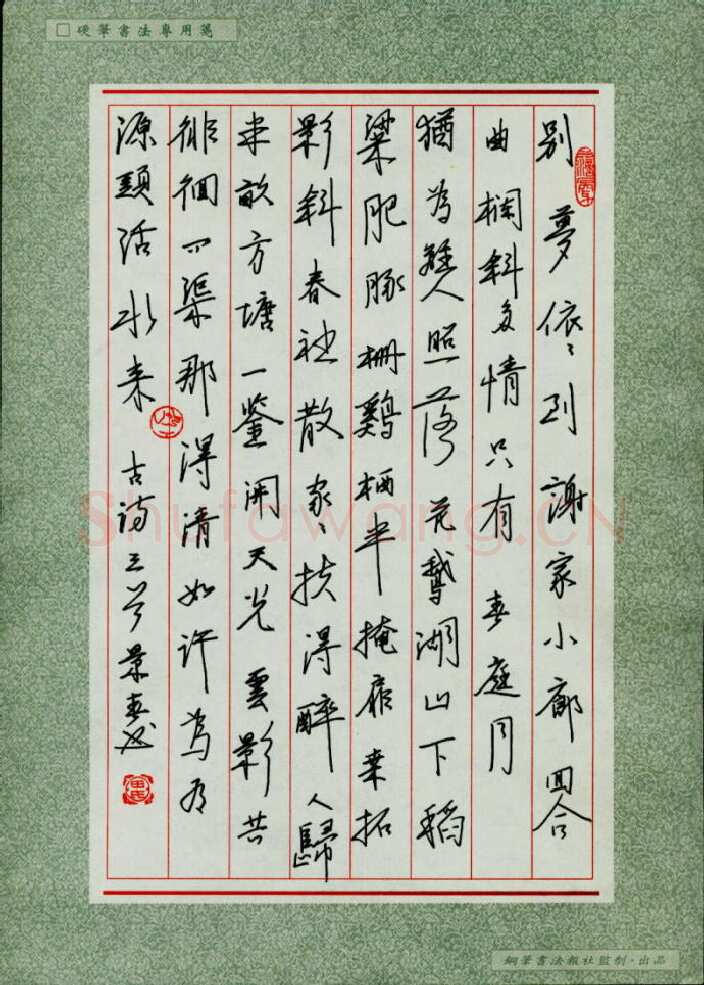 □硬筆書法專用箋
别夢依〻到謝家小廊回合
曲欄斜多情只有春庭月
猶為離人照落花鵝湖山下稻
粱肥豚柵鷄栖半掩扉桑拓
影斜春社散家〻扶得醉人歸
半畝方塘一鉴開天光雲影共
徘徊问渠那得清如许為有
源頭活水来 古诗三首 景春书
Shufawang.CN
鋼筆書法報社監制·出品